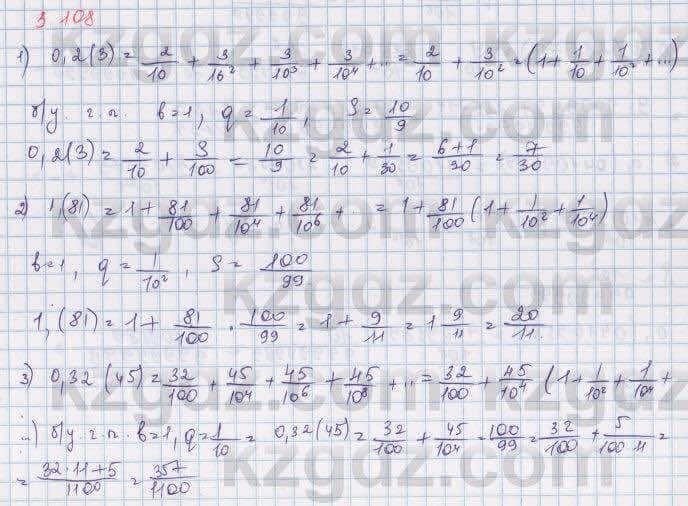 3.108
1) 0,2(3) = 2/10 + 3/10² + 3/10³ + 3/10⁴ + ... = 2/10 + 3/10² = (1 + 1/10 + 1/10² + ...)
б/у. г.п. b=1, q = 1/10, S = 10/9
0,2(3) = 2/10 + 3/100 = 10/9 = 2/10 + 1/30 = (6+1)/30 = 7/30
2) 1,(81) = 1 + 81/100 + 81/10⁴ + 81/10⁶ + .. = 1 + 81/100 (1 + 1/10² + 1/10⁴)
b=1, q = 1/10², S = 100/99
1,(81) = 1 + 81/100 · 100/99 = 1 + 9/11 = 1 9/11 = 20/11.
3) 0,32(45) = 32/100 + 45/10⁴ + 45/10⁶ + 45/10⁸ + ... = 32/100 + 45/10⁴ (1 + 1/10² + 1/10⁴ +
...) б/у. г.п. b=1, q = 1/10 = 0,32(45) = 32/100 + 45/10⁴ = 100/99 = 32/100 + 5/(100·11) =
= (32·11+5)/1100 = 357/1100
kzgdz.com